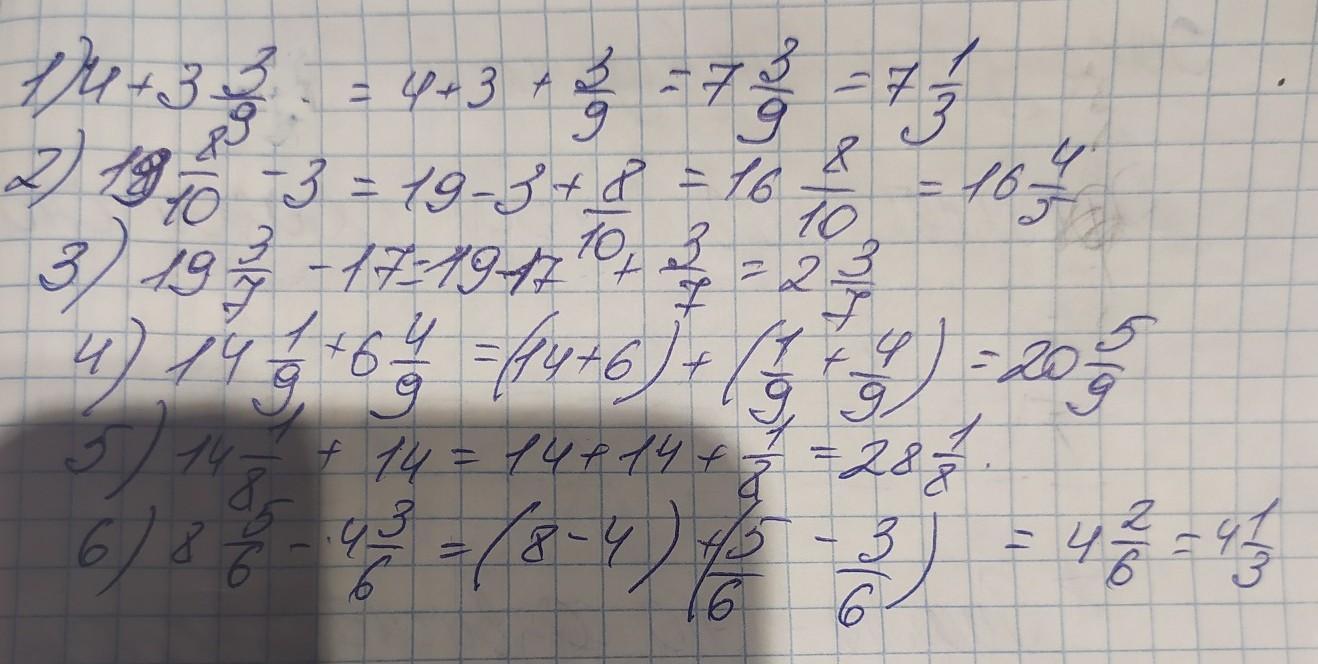 1) 4 + 3 3/9 = 4 + 3 + 3/9 = 7 3/9 = 7 1/3
2) 19 8/10 - 3 = 19 - 3 + 8/10 = 16 8/10 = 16 4/5
3) 19 3/7 - 17 = 19 - 17 + 3/7 = 2 3/7
4) 14 1/9 + 6 4/9 = (14 + 6) + (1/9 + 4/9) = 20 5/9
5) 14 1/8 + 14 = 14 + 14 + 1/8 = 28 1/8.
6) 8 5/6 - 4 3/6 = (8 - 4) + (5/6 - 3/6) = 4 2/6 = 4 1/3